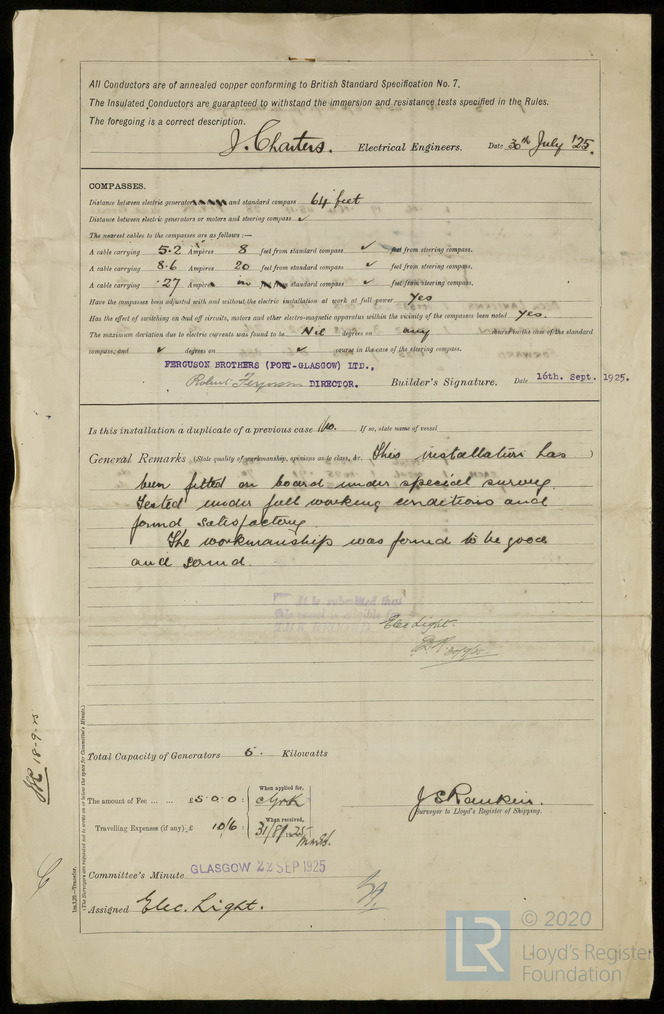 All Conductors are of annealed copper conforming to British Standard Specification No. 7.
The Insulated Conductors are guaranteed to withstand the immersion and resistance tests specified in the Rules.
The foregoing is a correct description.
J. Charters. Electrical Engineers. Date 30th July '25.
COMPASSES.
Distance between electric generators and standard compass 64 feet
Distance between electric generators or motors and steering compass ✓
The nearest cables to the compasses are as follows:—
A cable carrying 5.2 Ampères 8 feet from standard compass ✓ feet from steering compass.
A cable carrying 8.6 Ampères 20 feet from standard compass ✓ feet from steering compass.
A cable carrying .27 Ampères in standard compass ✓ feet from steering compass.
Have the compasses been adjusted with and without the electric installation at work at full power Yes
Has the effect of switching on and off circuits, motors and other electro-magnetic apparatus within the vicinity of the compasses been noted Yes.
The maximum deviation due to electric currents was found to be Nil degrees on any course in the case of the standard
compass, and ✓ degrees on ✓ course in the case of the steering compass.
FERGUSON BROTHERS (PORT-GLASGOW) LTD.,
Robert Ferguson DIRECTOR. Builder's Signature. Date 16th. Sept. 1925.
Is this installation a duplicate of a previous case No. If so, state name of vessel
General Remarks (State quality of workmanship, opinions as to class, &c. This installation has )
been fitted on board under special survey.
Tested under full working conditions and
found satisfactory.
The workmanship was found to be good
and sound.
It is submitted that
this vessel is eligible for
Elec Light.
Total Capacity of Generators 6. Kilowatts
The amount of Fee ... ... £5:0:0 When applied for,
Travelling Expenses (if any) £ 10/6 When received, 31/8/25
J E Rankin.
Surveyor to Lloyd's Register of Shipping.
Committee's Minute GLASGOW 22 SEP 1925
Assigned Elec. Light.
18-9-25
1m.3.25—Transfer.
(The Surveyors are requested not to write on or below the space for Committee's Minute.)
LR © 2020
Lloyd's Register
Foundation